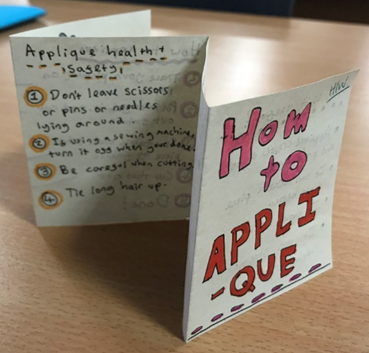 Applique health +
safety
1 Don't leave scissors
or pins or needles
lying around.
2 If using a sewing machine,
turn it off when your done.
3 Be careful when cutting
4 Tie long hair up.
HW
How
to
APPLI
-QUE